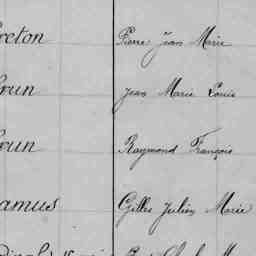 reton Pierre Jean Marie
run Jean Marie Louis
run Raymond François
amus Gilles Julien Marie